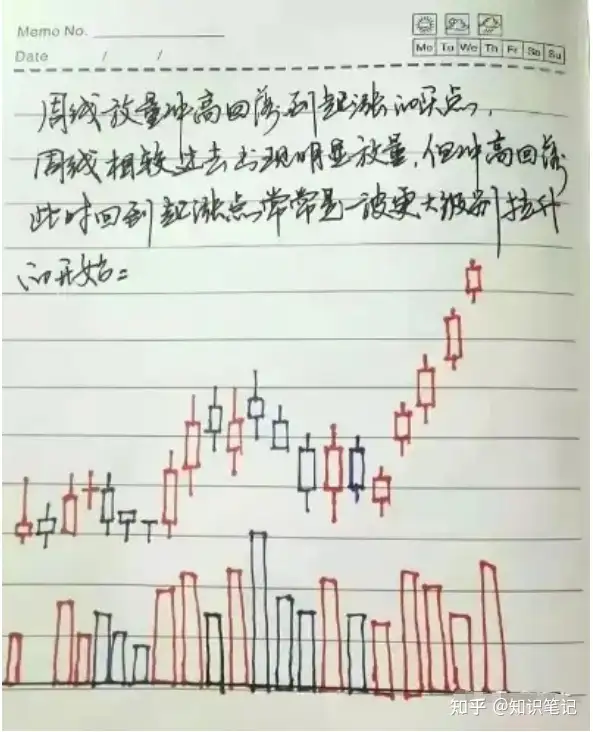 Memo No.
Mo Tu We Th Fr Sa Su
Date / /
周线放量冲高回落到起涨的买点,
周线相较过去出现明显放量,但冲高回落
此时回到起涨点常常是一波更大级别拉升
的开始:
知乎 @知识笔记